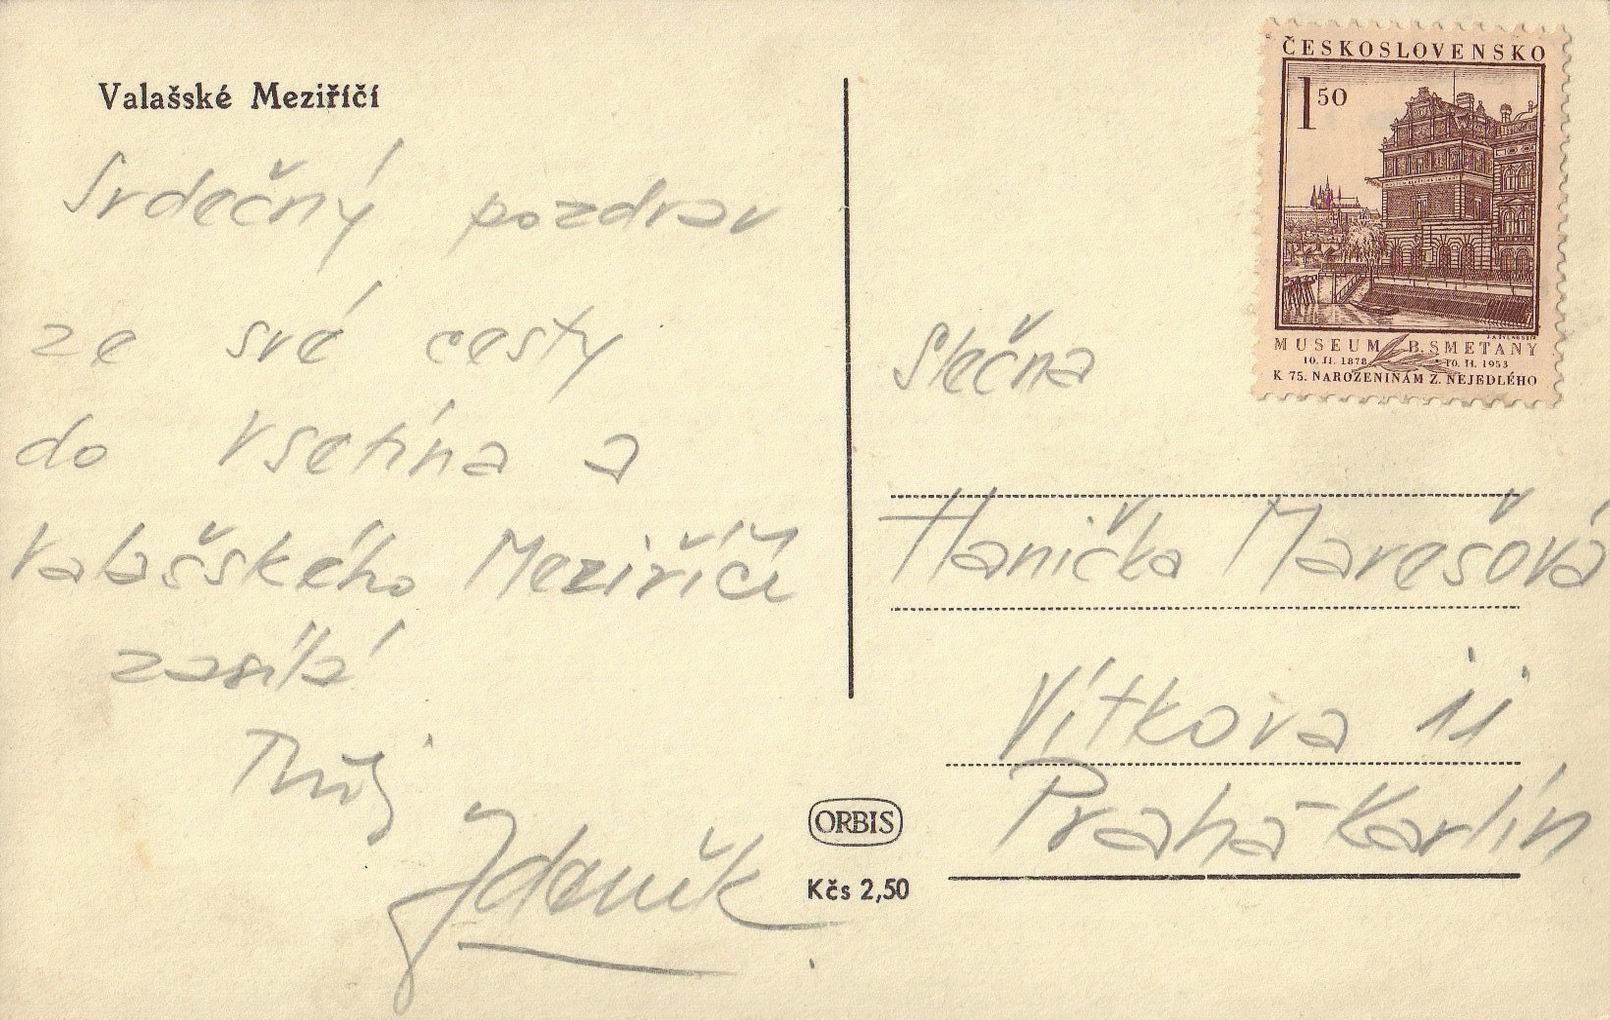 Valašské Meziříčí
Srdečný pozdrav
ze své cesty
do Vsetína a
Valašského Meziříčí
zasílá
Tvůj
Zdeněk
ČESKOSLOVENSKO
1 50
MUSEUM B. SMETANY
10. II. 1878 10. II. 1953
K 75. NAROZENINÁM Z. NEJEDLÉHO
Slečna
Hanička Marešová
Vítkova 11
Praha-Karlín
ORBIS
Kčs 2,50